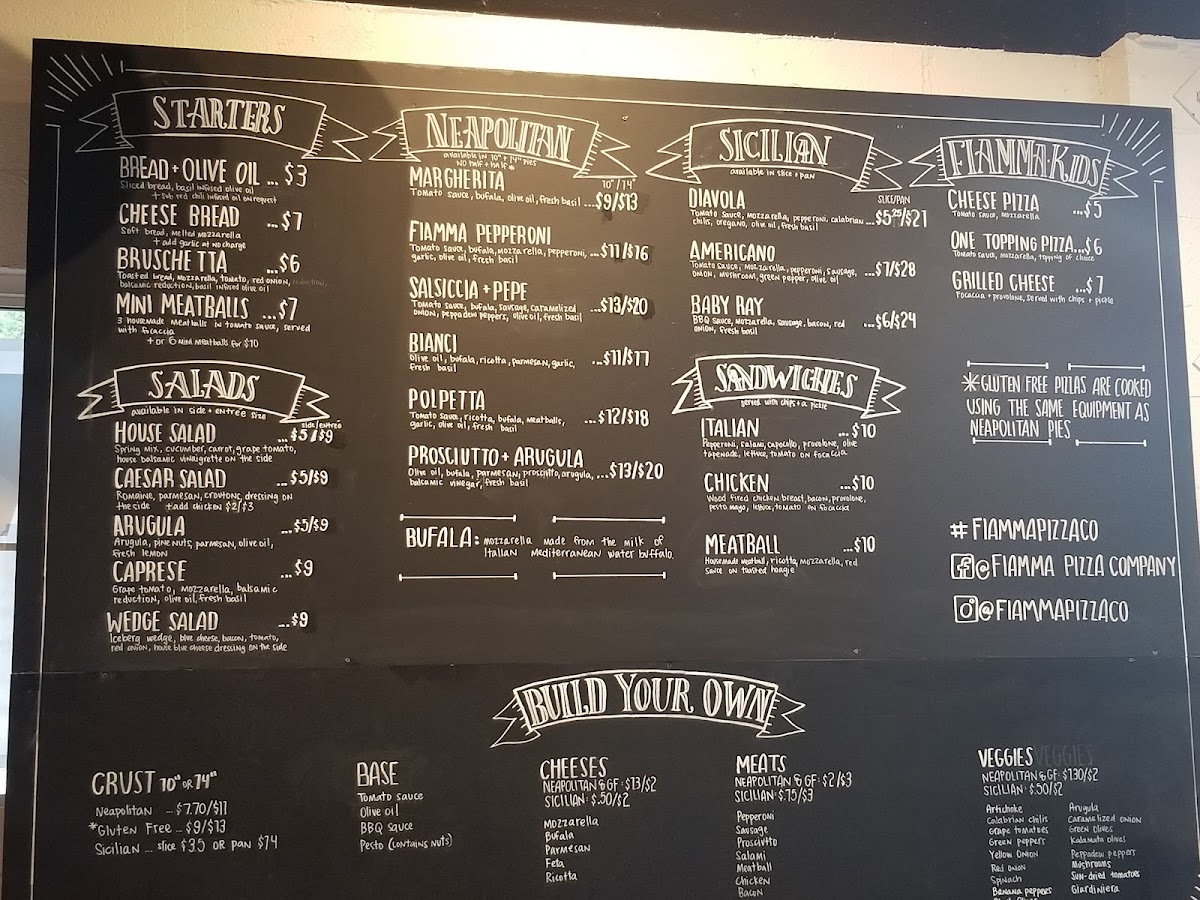 STARTERS
BREAD + OLIVE OIL ... $3
Sliced bread, basil infused olive oil
+ sub red chili infused oil on request
CHEESE BREAD ... $7
Soft bread, melted mozzarella
+ add garlic at no charge
BRUSCHETTA ...$6
Toasted bread, mozzarella, tomato, red onion,
balsamic reduction, basil infused olive oil
MINI MEATBALLS ...$7
3 housemade meatballs in tomato sauce, served
with focaccia
+ or 6 mini meatballs for $10
SALADS
available in side + entrée size
side/entrée
HOUSE SALAD ...$5/$9
Spring mix, cucumber, carrot, grape tomato,
house balsamic vinaigrette on the side
CAESAR SALAD ...$5/$9
Romaine, parmesan, croutons, dressing on
the side +add chicken $2/$3
ARUGULA ...$5/$9
Arugula, pine nuts, parmesan, olive oil,
fresh lemon
CAPRESE ...$9
Grape tomato, mozzarella, balsamic
reduction, olive oil, fresh basil
WEDGE SALAD ...$9
Iceberg wedge, blue cheese, bacon, tomato,
red onion, house blue cheese dressing on the side
NEAPOLITAN
available in 10" + 14" pies
NO half + half *
10"/14"
MARGHERITA
Tomato sauce, bufala, olive oil, fresh basil ...$9/$13
FIAMMA PEPPERONI
Tomato sauce, bufala, mozzarella, pepperoni, ...$11/$16
garlic, olive oil, fresh basil
SALSICCIA + PEPE
Tomato sauce, bufala, sausage, caramelized ...$13/$20
onion, peppadew peppers, olive oil, fresh basil
BIANCI
Olive oil, bufala, ricotta, parmesan, garlic, ...$11/$17
fresh basil
POLPETTA
Tomato sauce, ricotta, bufala, meatballs, ...$12/$18
garlic, olive oil, fresh basil
PROSCIUTTO + ARUGULA
Olive oil, bufala, parmesan, prosciutto, arugula, ...$13/$20
balsamic vinegar, fresh basil
BUFALA: mozzarella made from the milk of
Italian Mediterranean water buffalo.
SICILIAN
available in slice + pan
SLICE/PAN
DIAVOLA
Tomato sauce, mozzarella, pepperoni, calabrian ...$5.25/$21
chilis, oregano, olive oil, fresh basil
AMERICANO
Tomato sauce, mozzarella, pepperoni, sausage, ...$7/$28
onion, mushroom, green pepper, olive oil
BABY RAY
BBQ sauce, mozzarella, sausage, bacon, red ...$6/$24
onion, fresh basil
SANDWICHES
served with chips + a pickle
ITALIAN ...$10
Pepperoni, salami, capocollo, provolone, olive
tapenade, lettuce, tomato on focaccia
CHICKEN ...$10
Wood fired chicken breast, bacon, provolone,
pesto mayo, lettuce, tomato on focaccia
MEATBALL ...$10
Housemade meatball, ricotta, mozzarella, red
sauce on toasted hoagie
FIAMMA KIDS
CHEESE PIZZA ...$5
Tomato sauce, mozzarella
ONE TOPPING PIZZA...$6
Tomato sauce, mozzarella, topping of choice
GRILLED CHEESE ...$7
Focaccia + provolone, served with chips + pickle
*GLUTEN FREE PIZZAS ARE COOKED
USING THE SAME EQUIPMENT AS
NEAPOLITAN PIES
# FIAMMAPIZZACO
f @FIAMMA PIZZA COMPANY
@FIAMMAPIZZACO
BUILD YOUR OWN
CRUST 10" OR 14"
Neapolitan ...$7.70/$11
*Gluten Free ...$9/$13
Sicilian ... slice $3.5 OR PAN $14
BASE
Tomato sauce
Olive oil
BBQ sauce
Pesto (contains nuts)
CHEESES
NEAPOLITAN & GF: $1.3/$2
SICILIAN: $.50/$2
Mozzarella
Bufala
Parmesan
Feta
Ricotta
MEATS
NEAPOLITAN & GF: $2/$3
SICILIAN: $.75/$3
Pepperoni
Sausage
Prosciutto
Salami
Meatball
Chicken
Bacon
VEGGIES
NEAPOLITAN & GF: $1.30/$2
SICILIAN: $.50/$2
Artichoke
Calabrian chilis
Grape tomatoes
Green peppers
Yellow onion
Red onion
Spinach
Banana peppers
Arugula
Caramelized onion
Green olives
Kalamata olives
Peppadew peppers
Mushrooms
Sun-dried tomatoes
Giardiniera